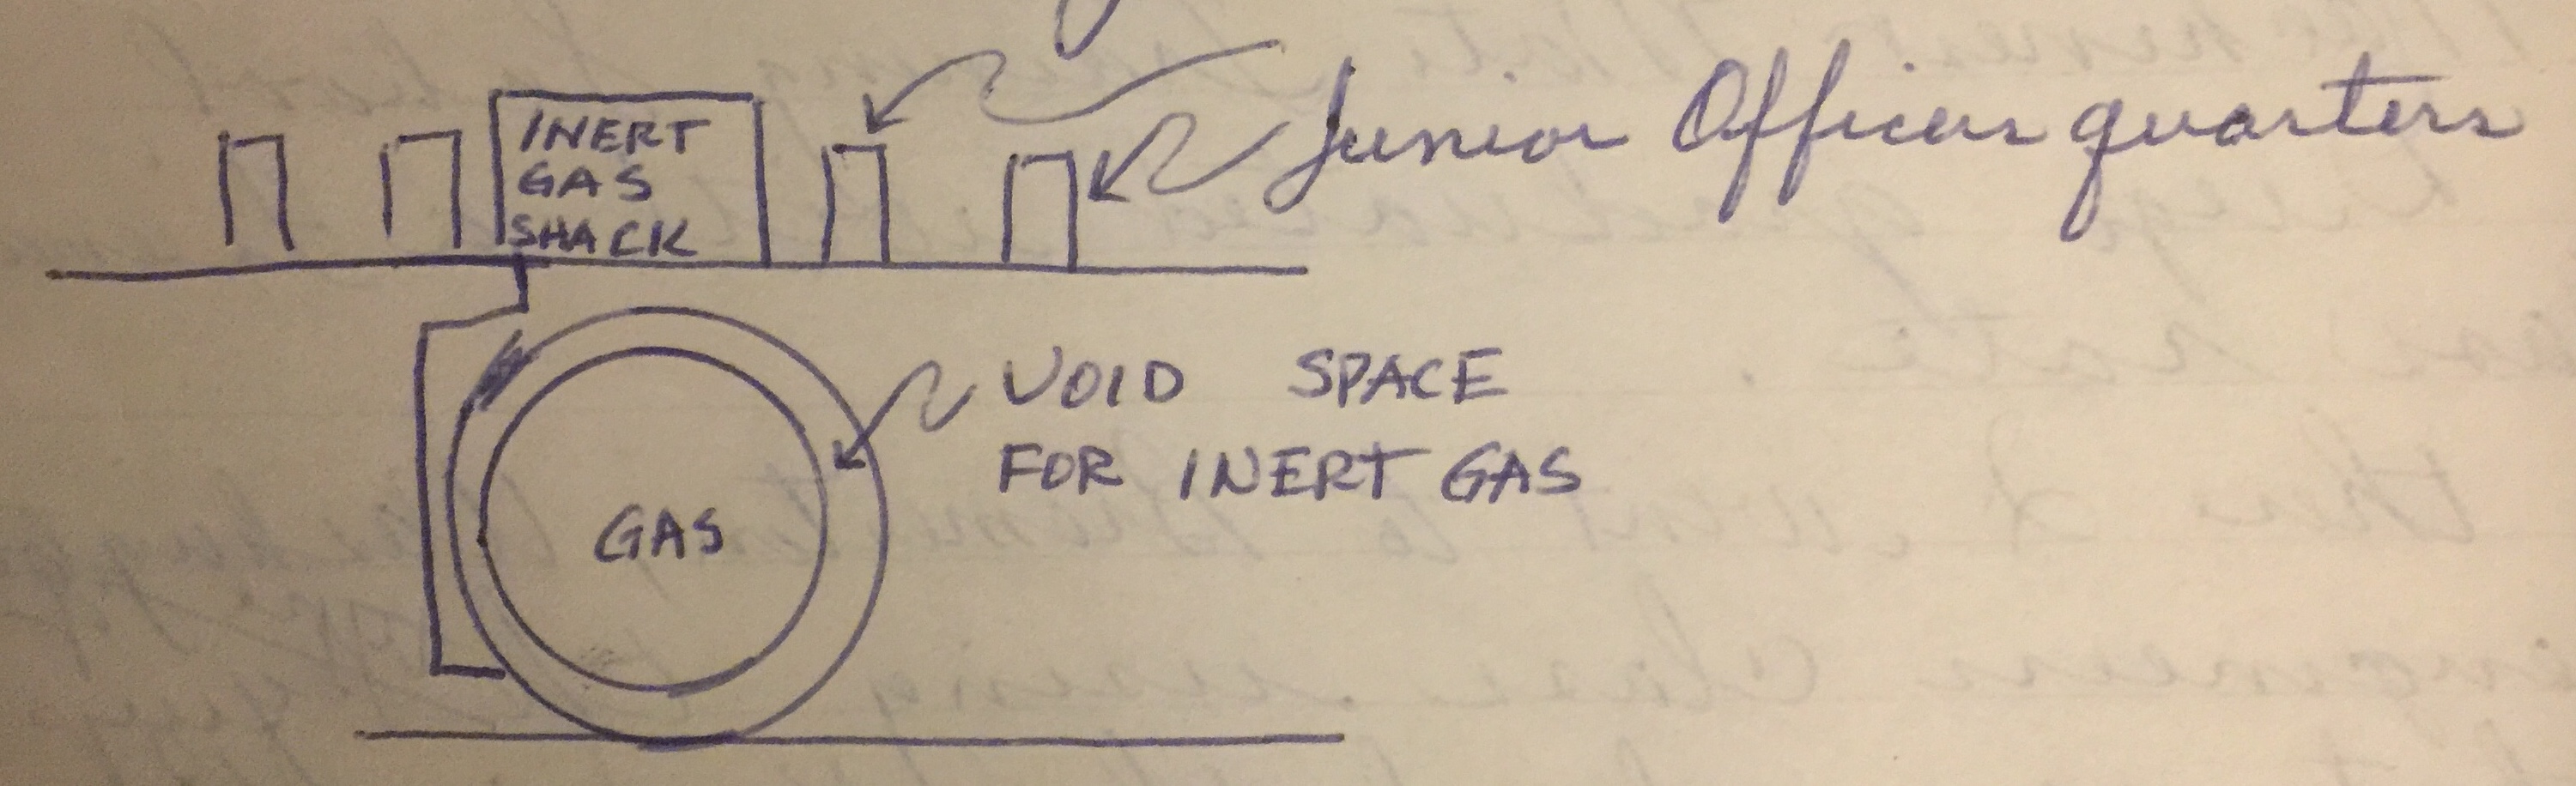 INERT
GAS
SHACK
Junior Officer quarters
VOID SPACE
FOR INERT GAS
GAS